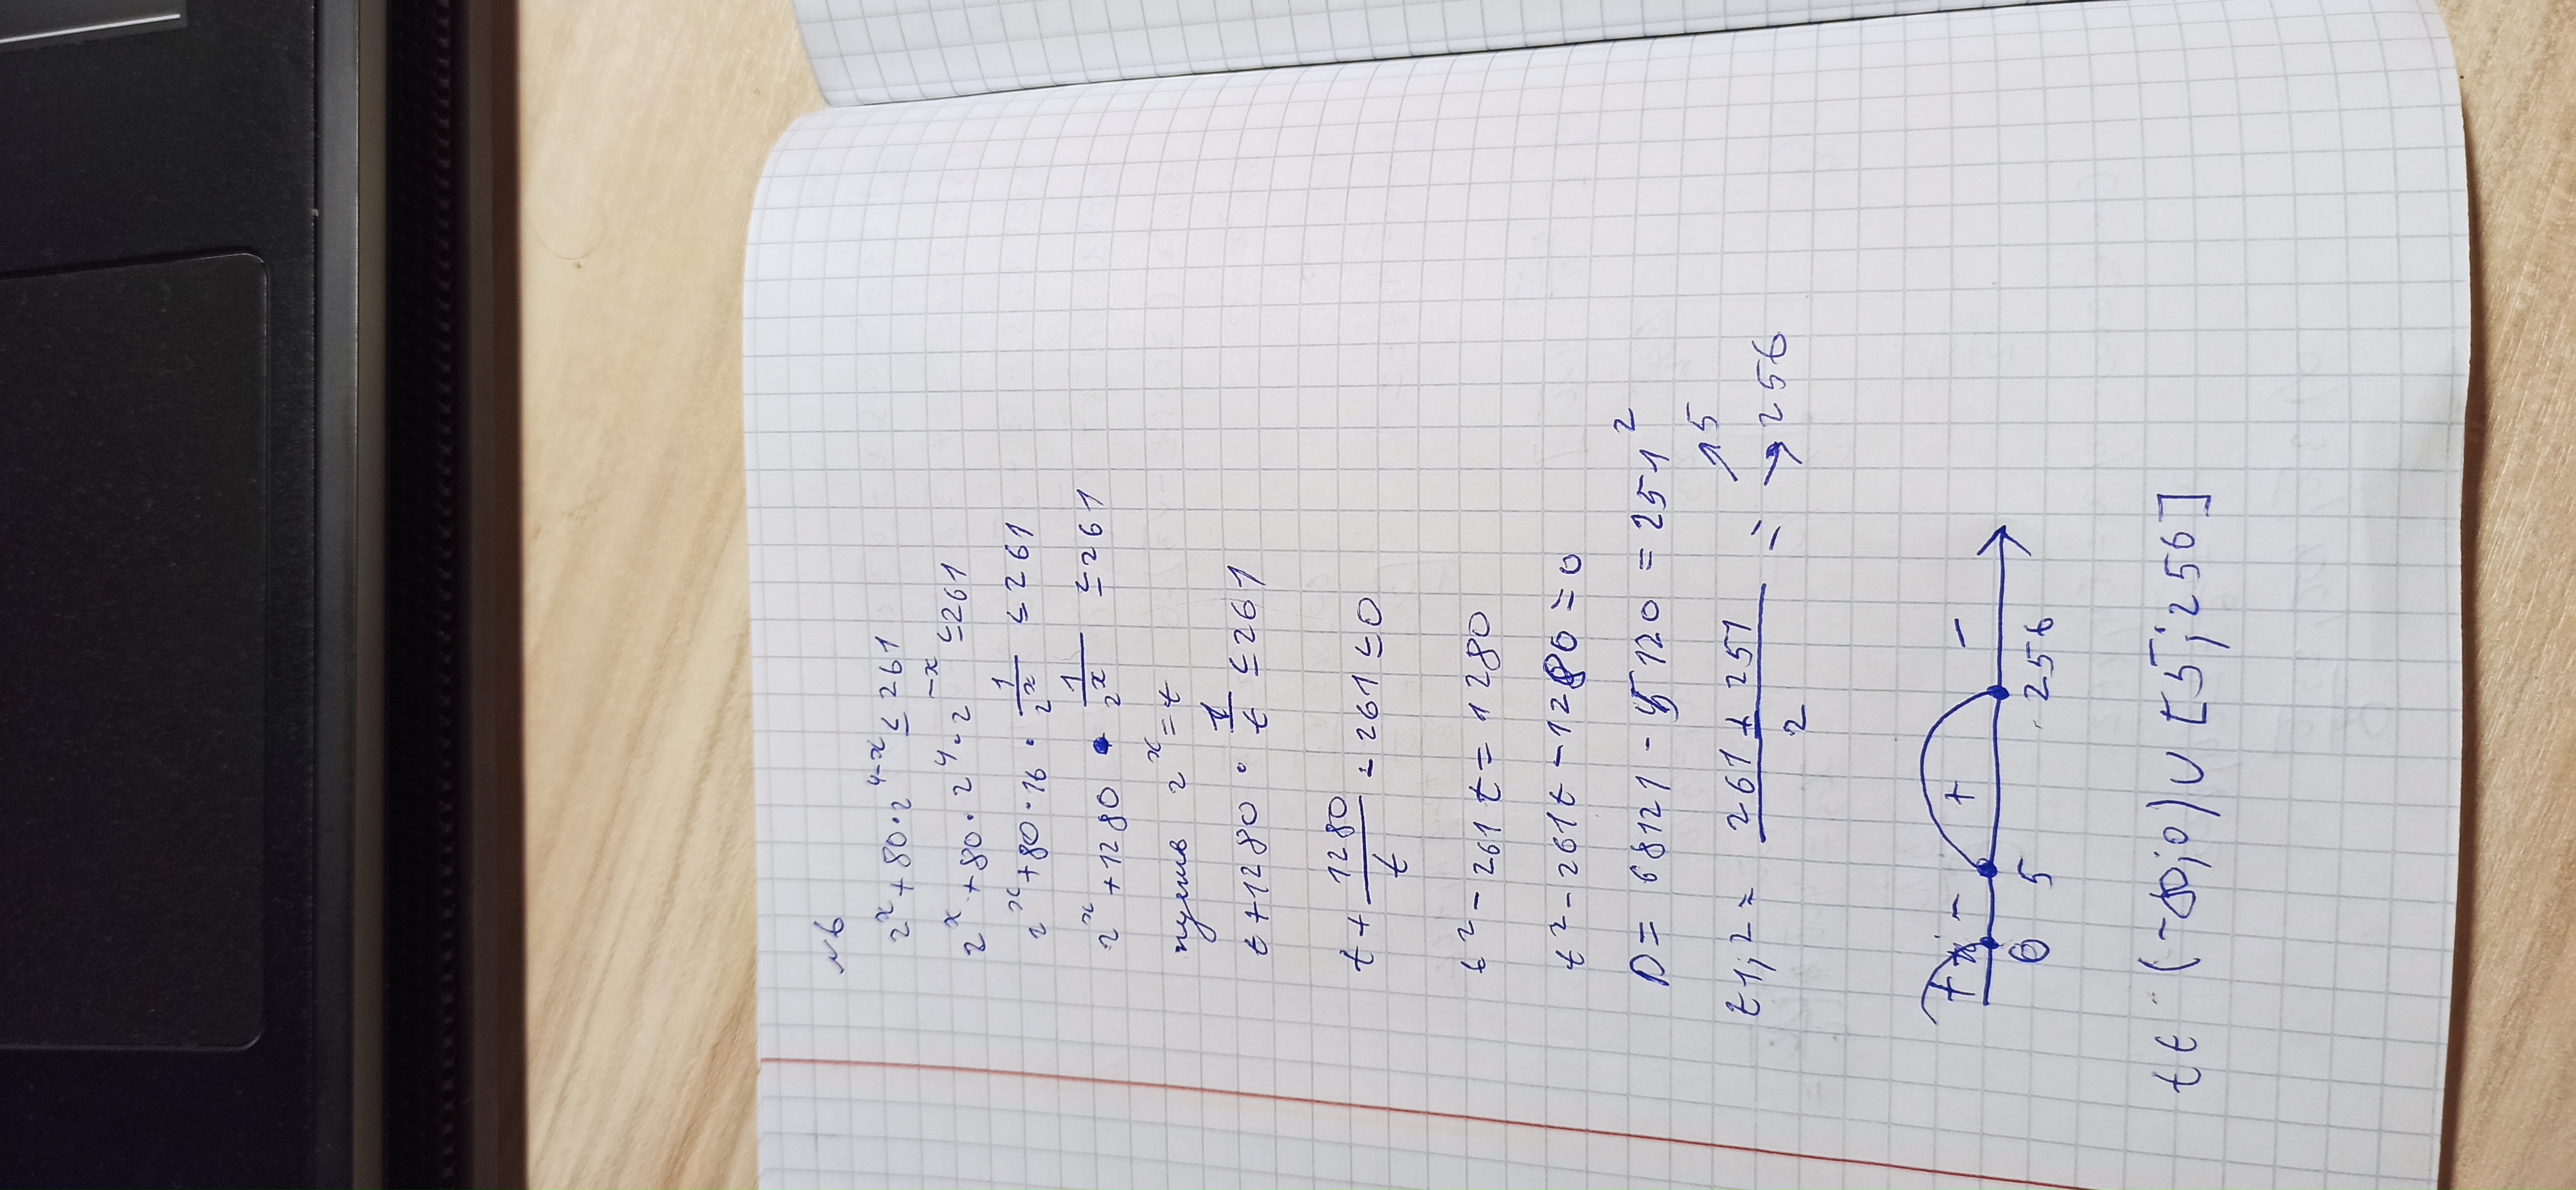 №6
2^x + 80 · 2^{4-x} ≤ 261
2^x + 80 · 2^4 · 2^{-x} ≤ 261
2^x + 80 · 16 · 1/2^x ≤ 261
2^x + 1280 · 1/2^x ≤ 261
пусть 2^x = t
t + 1280 · 1/t ≤ 261
t + 1280/t - 261 ≤ 0
t^2 - 261t = 1280
t^2 - 261t - 1280 = 0
D = 68121 - 5120 = 251^2
t1;2 = (261 ± 251)/2 = ↗ 5 → 256
+ - + -
0 5 256
t ∈ (-∞;0) ∪ [5;256]